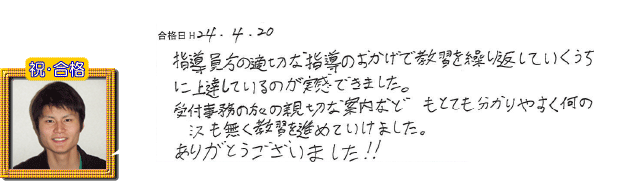 合格日 H24.4.20
祝・合格
指導員方の適切な指導のおかげで教習を繰り返していくうち
に上達しているのが実感できました。
受付事務の方々の親切な案内など もとても分かりやすく何の
ミスも無く教習を進めていけました。
ありがとうございました!!